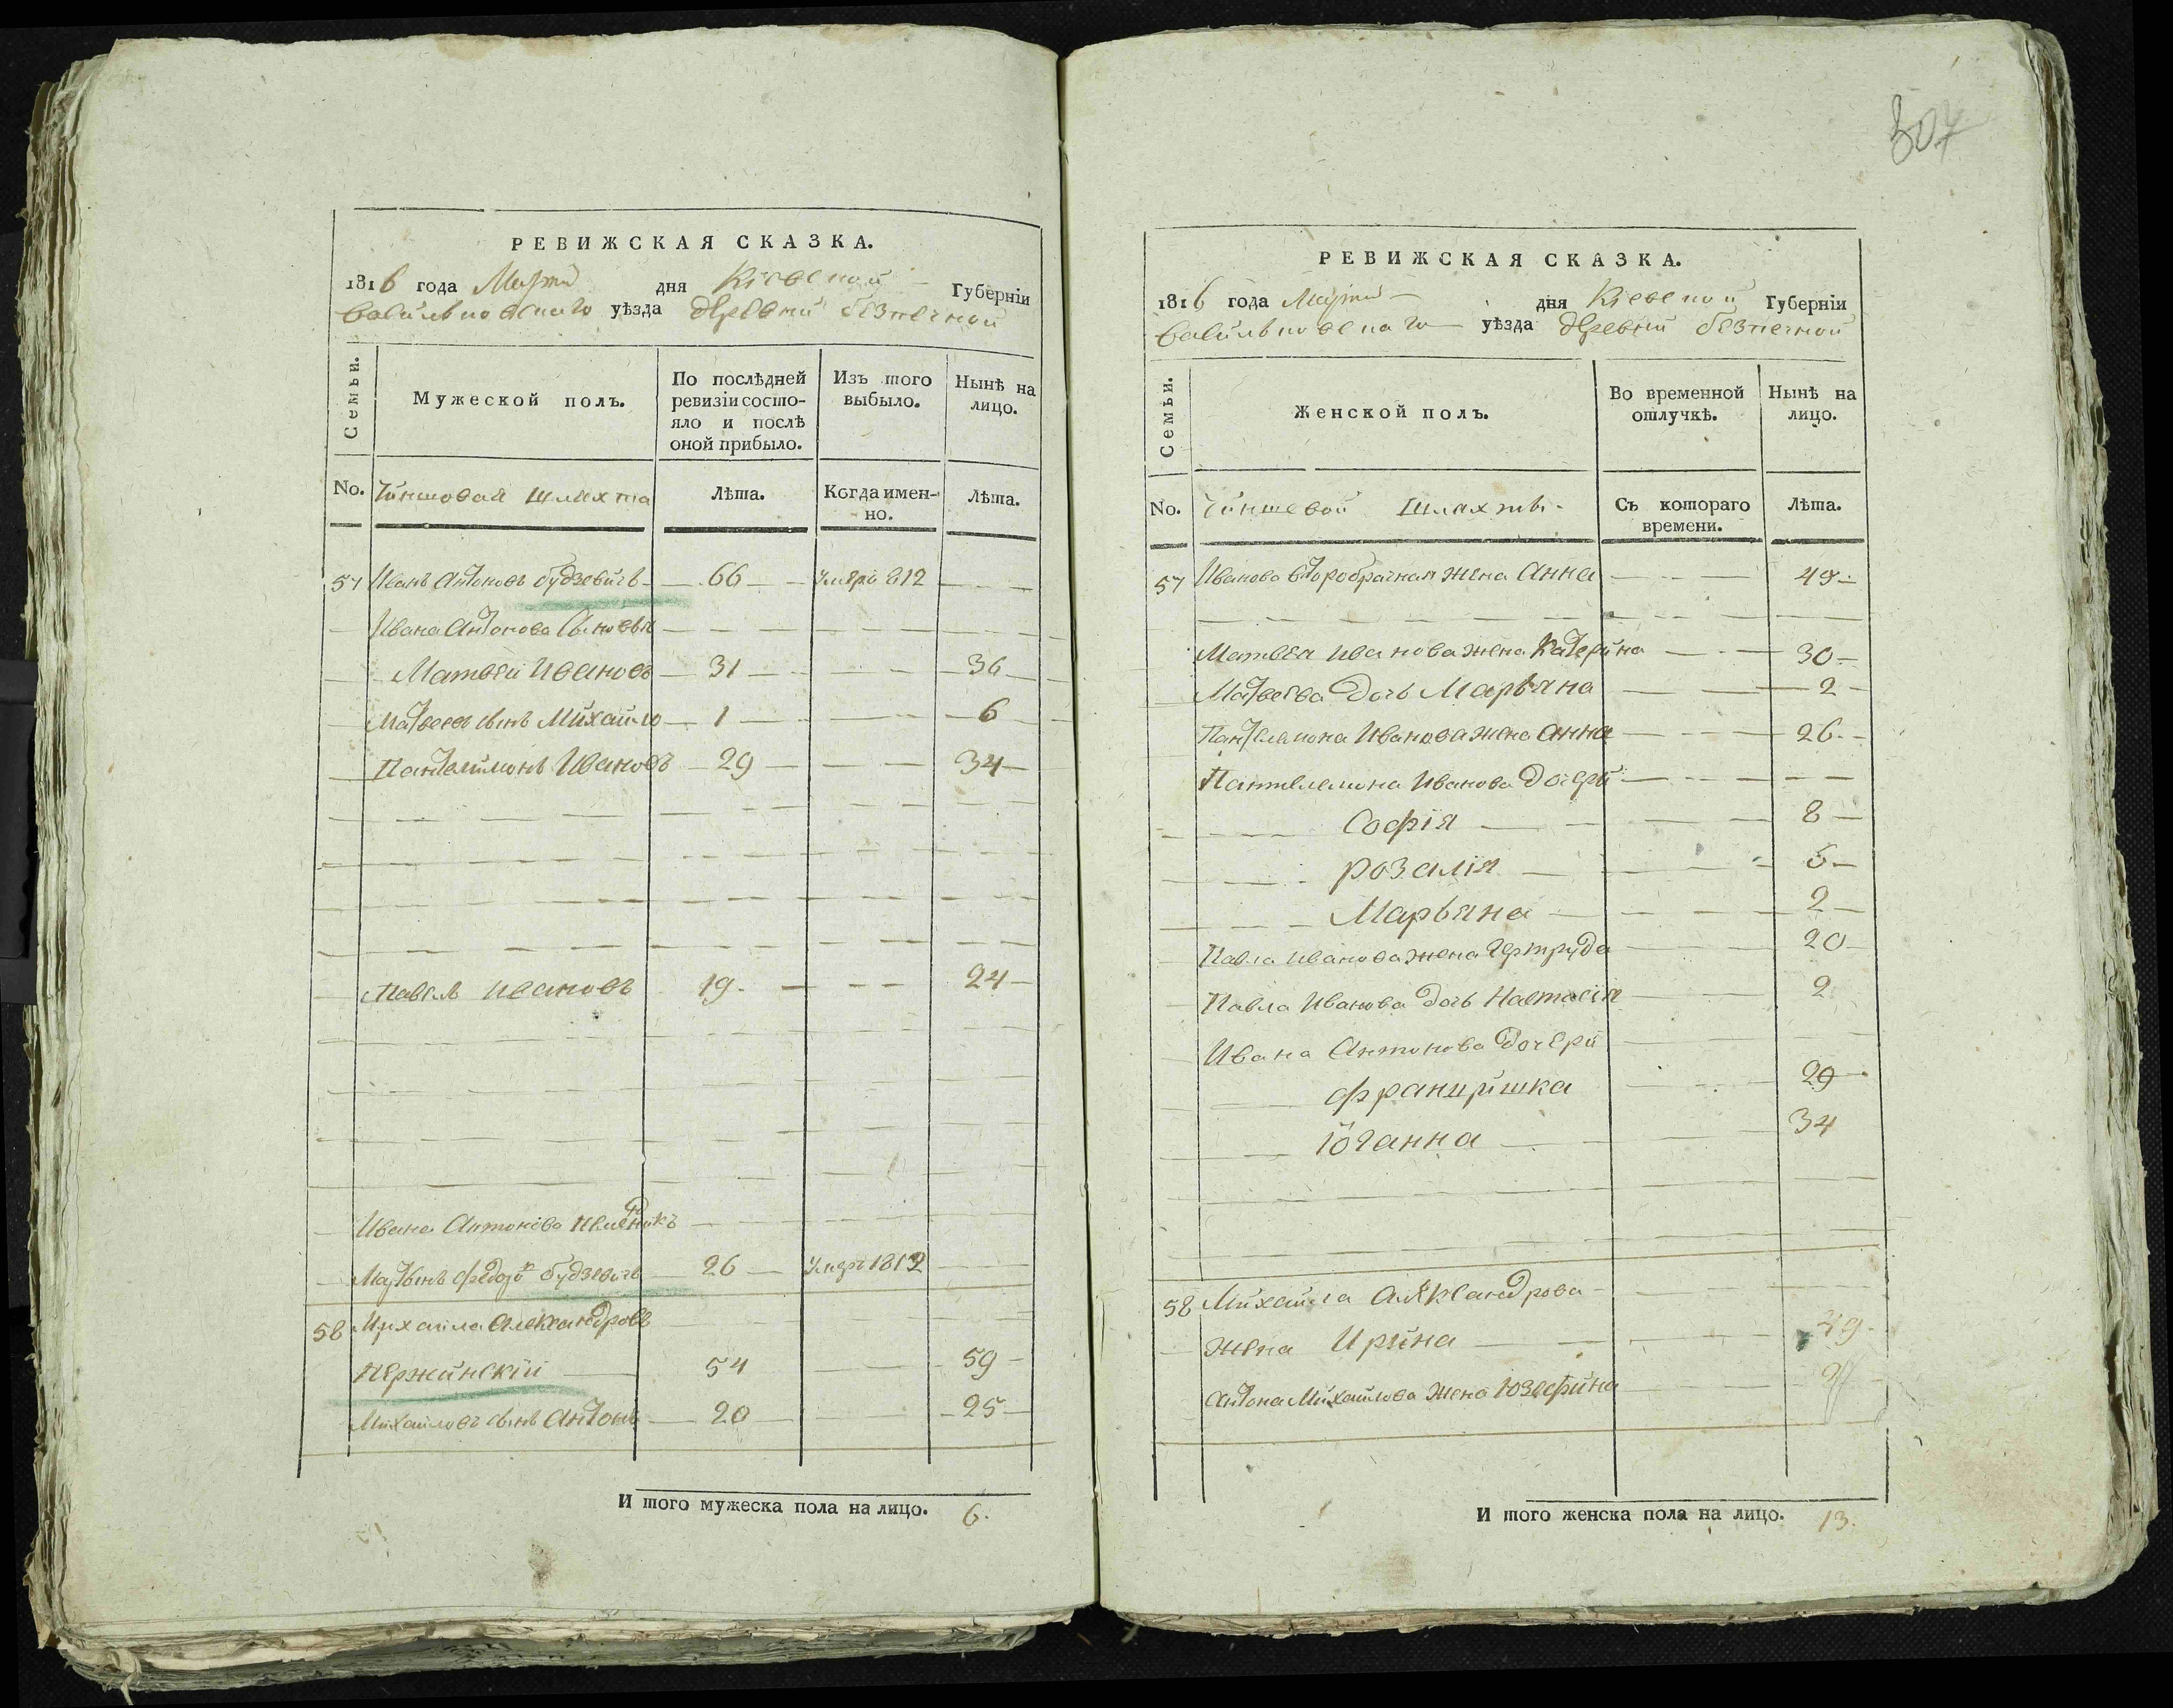 РЕВИЖСКАЯ СКАЗКА.
1816 года Марта дня Кіевской Губерніи
Васильковскаго уѣзда деревни безпечной
Семьи.
Мужеской полъ.
По послѣдней ревизіи состояло и послѣ оной прибыло.
Изъ того выбыло.
Нынѣ на лицо.
No. Чиншовая шляхта Лѣта. Когда именно. Лѣта.
57 Иванъ Антоновъ будзевичъ 66 умеръ 812
Ивана Антонова Сыновья
Матвѣй Ивановъ 31 36
Матвеевъ сынъ Михайло 1 6
Пантелимонъ Ивановъ 29 34
Павелъ Ивановъ 19 24
Ивана Антонова племеникъ
Мартынъ Федоро будзевичъ 26 умеръ 1812
58 Михайла Александровъ
пержинскій 54 59
Михайловъ сынъ Антонъ 20 25
И того мужеска пола на лицо. 6.
307
РЕВИЖСКАЯ СКАЗКА.
1816 года Марта дня Кіевской Губерніи
Васильковскаго уѣзда деревни безпечной
Семьи.
Женской полъ.
Во временной отлучкѣ.
Нынѣ на лицо.
No. Чиншевой Шляхты Съ котораго времени. Лѣта.
57 Иванова второбрачная жена Анна 49
Матвея Иванова жена Катерина 30
Матвеева дочь Марьяна 2
Пантелемона Иванова жена Анна 26
Пантелемона Иванова дочери
Софія 8
розалія 5
Марьяна 2
Павла Иванова жена Гертруда 20
Павла Иванова дочь Настасія 2
Ивана Антонова дочери
Францишка 29
Іоганна 34
58 Михайла Александрова
жена Ирина 49
Антона Михайлова жена Юзефина
И того женска пола на лицо. 13.